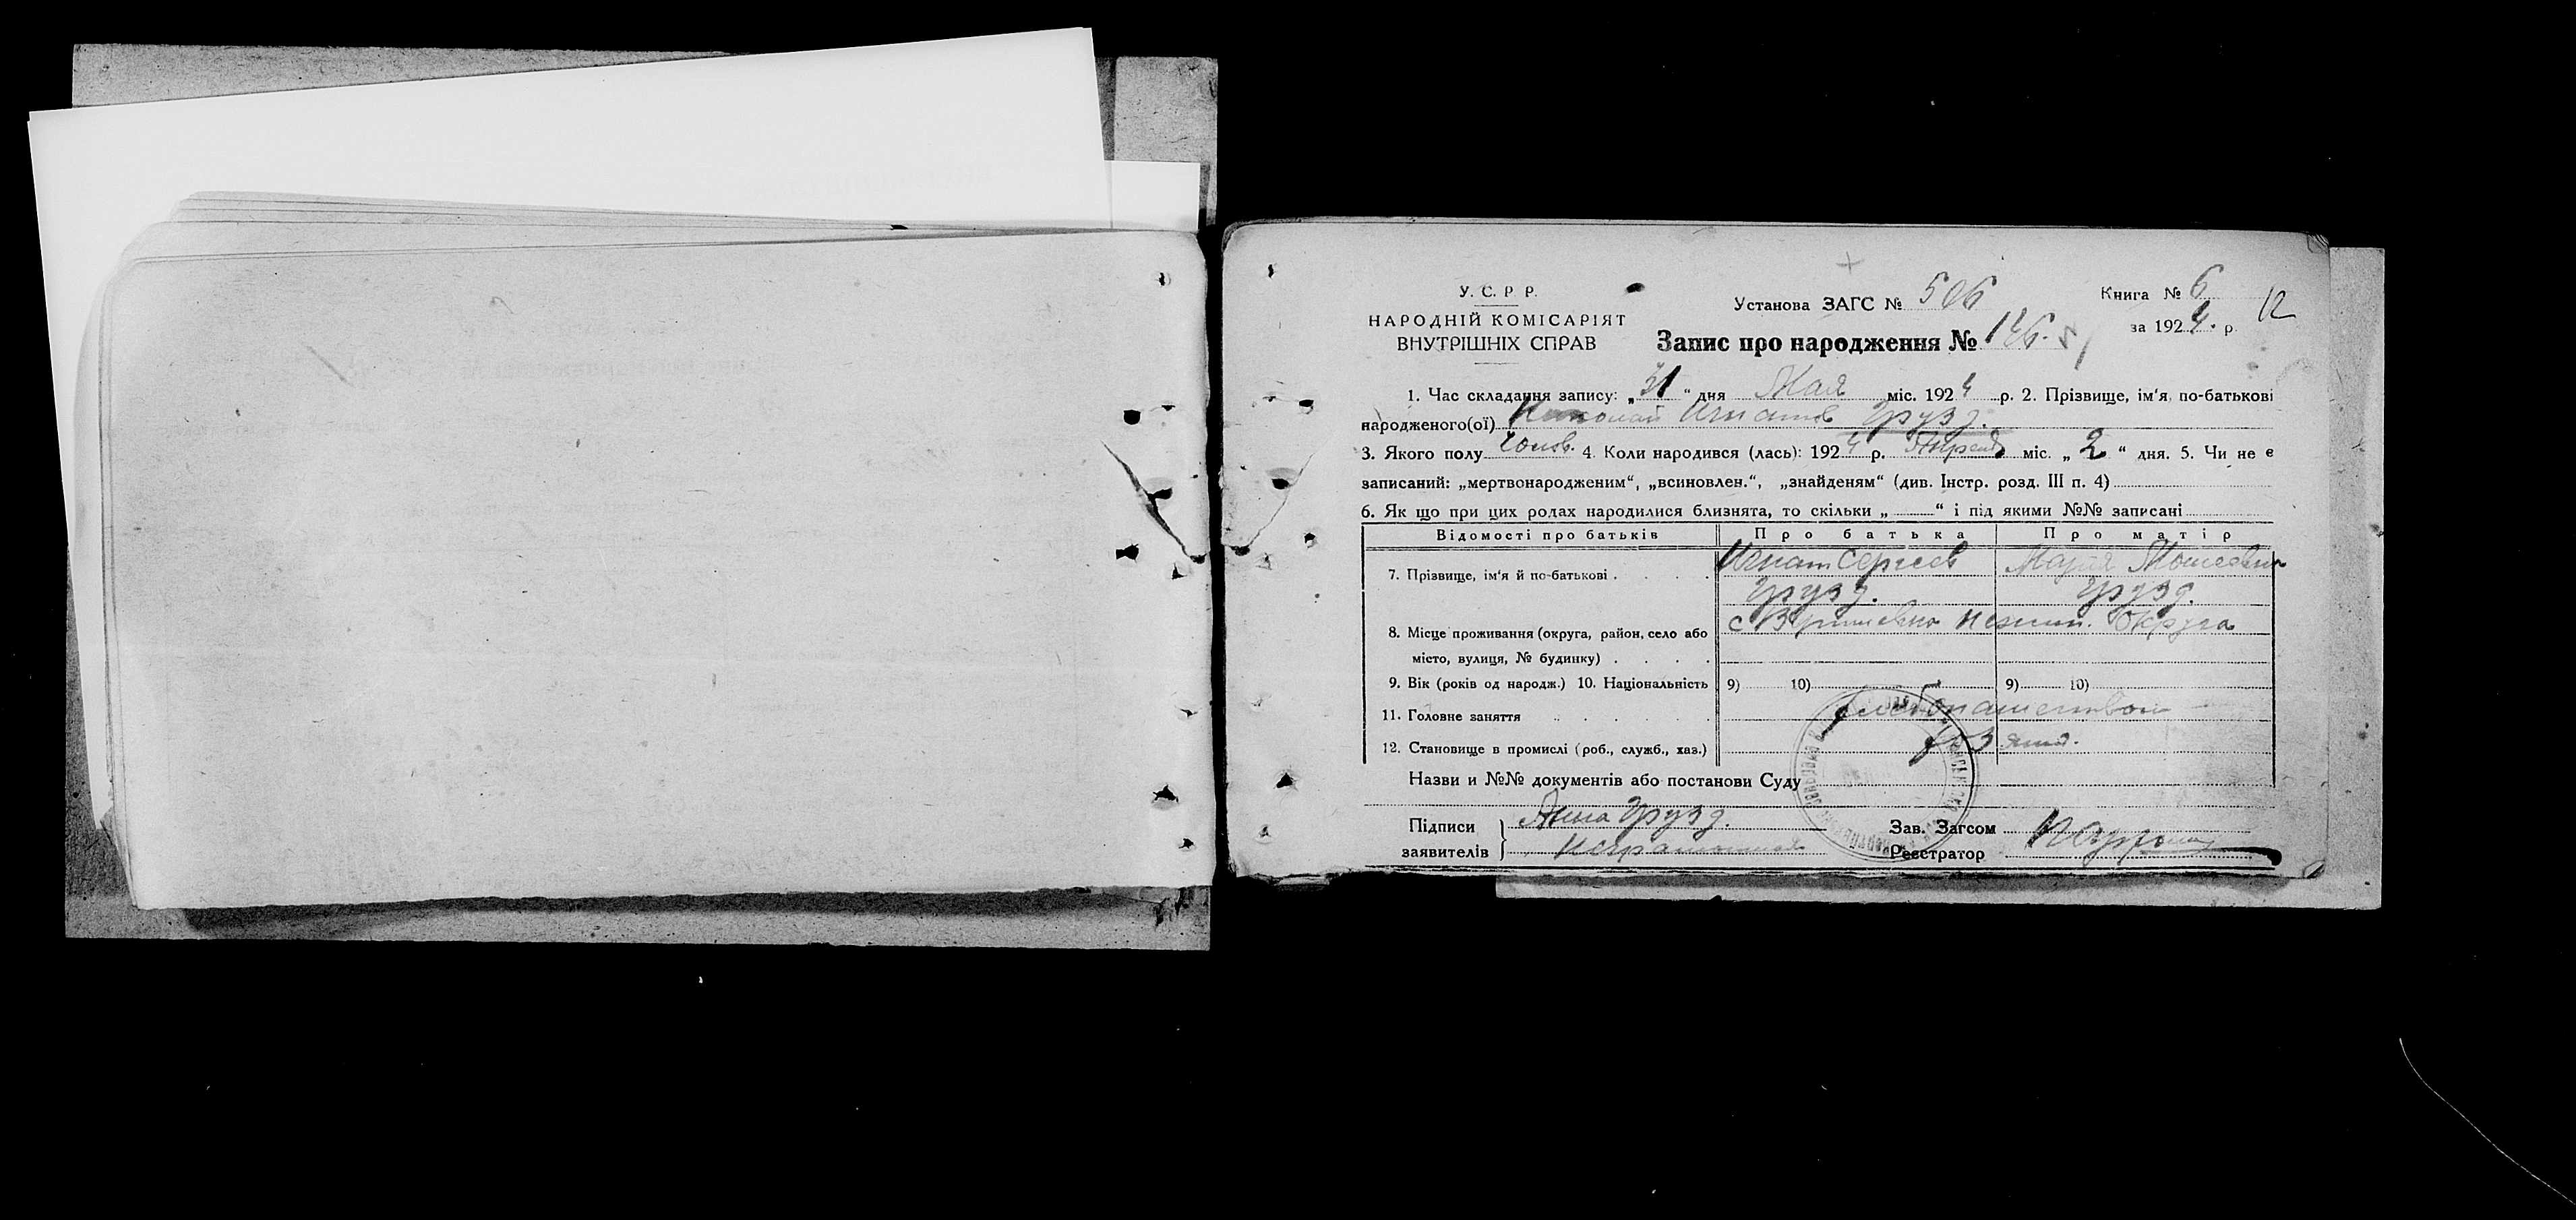 У. С. Р. Р.
НАРОДНІЙ КОМІСАРІЯТ
ВНУТРІШНІХ СПРАВ
Установа ЗАГС № 506
Книга № 6
за 1924 р.
12
Запис про народження № 126.
1. Час складання запису: „31“ дня Мая міс. 1924 р. 2. Прізвище, ім'я, по-батькові
народженого(ої) Николай Игнатов Грузд.
3. Якого полу Чолов. 4. Коли народився (лась): 1924 р. Апреля міс. „2“ дня. 5. Чи не є
записаний: „мертвонародженим“, „всиновлен.“, „знайденям“ (див. Інстр. розд. III п. 4)
6. Як що при цих родах народилися близнята, то скільки „ “ і під якими №№ записані
Відомості про батьків Про батька Про матір
7. Прізвище, ім'я й по-батькові . . . . Игнат Сергеев Мария
Грузд. Грузд.
8. Місце проживання (округа, район, село або с. Нежин. Округа
місто, вулиця, № будинку) . . . .
9. Вік (років од народж.) 10. Національність 9) 10) 9) 10)
11. Головне заняття . . . . . . хлебопашеством
12. Становище в промислі (роб., служб., хаз.)
Назви и №№ документів або постанови Суду
Підписи Анна Грузд.
заявителів Неграмотная
Зав. Загсом
Реєстратор